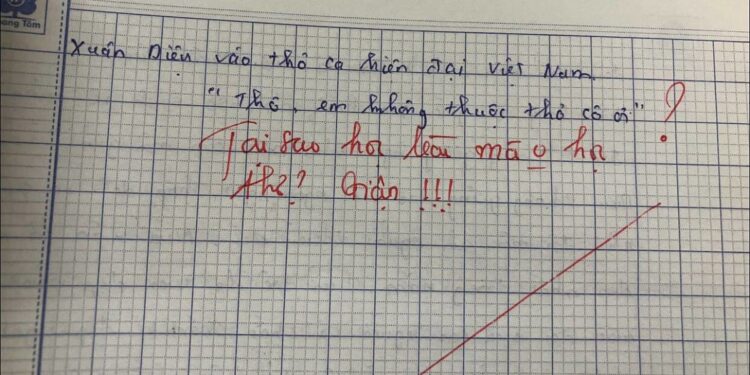 ang Tâm
Xuân Diệu vào thơ ca hiện đại Việt Nam.
"Thơ, em không thuộc thơ cô ơi" ?
Tại sao học
thế? Giận !!!